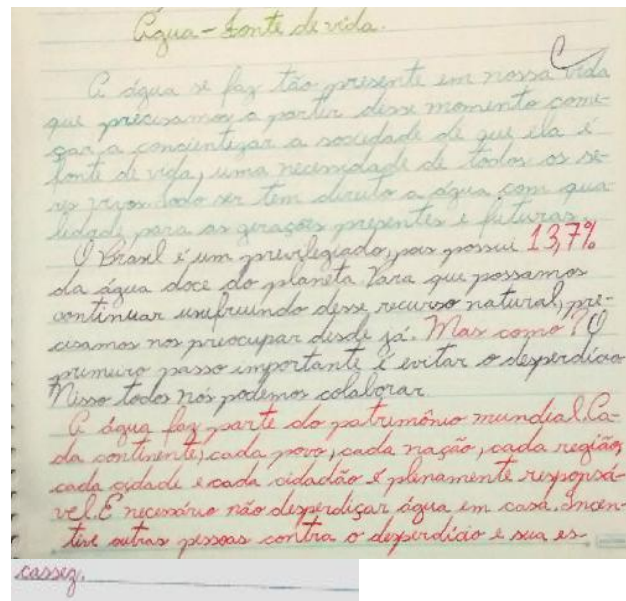 Água - Fonte de vida.
A água se faz tão presente em nossa vida
que precisamos a partir desse momento come-
çar a concientizar a sociedade de que ela é
fonte de vida, uma necessidade de todos os se-
res vivos. Todo ser tem direito a água com qua-
lidade, para as gerações presentes e futuras.
O Brasil é um previlegiado, pois possui 13,7%
da água doce do planeta. Para que possamos
continuar usufruindo desse recurso natural, pre-
cisamos nos preocupar desde já. Mas como? O
primeiro passo importante é evitar o desperdício
Nisso todos nós podemos colaborar.
A água faz parte do patrimônio mundial. Ca-
da continente, cada povo, cada nação, cada região,
cada cidade e cada cidadão é plenamente responsá-
vel. É necessário não desperdiçar água em casa. Incen-
tive outras pessoas contra o desperdício e sua es-
cassez.